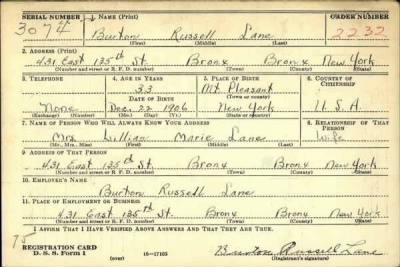 SERIAL NUMBER 1. NAME (Print) ORDER NUMBER
3074 Burton Russell Lane 2232
(First) (Middle) (Last)
2. ADDRESS (Print)
431 East 135th St. Bronx Bronx New York
(Number and street or R. F. D. number) (Town) (County) (State)
3. TELEPHONE 4. AGE IN YEARS 5. PLACE OF BIRTH 6. COUNTRY OF CITIZENSHIP
33 Mt Pleasant
DATE OF BIRTH (Town or county)
None Dec. 22 1906 New York U.S.A.
(Exchange) (Number) (Mo.) (Day) (Yr.) (State or country)
7. NAME OF PERSON WHO WILL ALWAYS KNOW YOUR ADDRESS 8. RELATIONSHIP OF THAT PERSON
Mrs. Lillian Marie Lane Wife
(Mr., Mrs., Miss) (First) (Middle) (Last)
9. ADDRESS OF THAT PERSON
431 East 135th St. Bronx Bronx New York
(Number and street or R. F. D. number) (Town) (County) (State)
10. EMPLOYER'S NAME
Burton Russell Lane
11. PLACE OF EMPLOYMENT OR BUSINESS
431 East 135th St. Bronx Bronx New York
(Number and street or R. F. D. number) (Town) (County) (State)
I AFFIRM THAT I HAVE VERIFIED ABOVE ANSWERS AND THAT THEY ARE TRUE.
REGISTRATION CARD
D. S. S. Form 1 (over) 16—17105 Burton Russell Lane
(Registrant's signature)